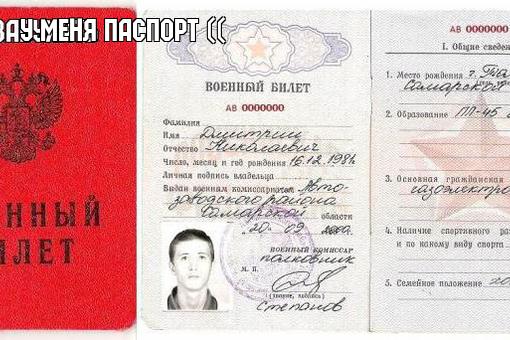 ЗАУ МЕНЯ ПАСПОРТ ((
ЕННЫЙ
ИЛЕТ
ВОЕННЫЙ БИЛЕТ
АВ 0000000
Фамилия
Имя Дмитрий
Отчество Николаевич
Число, месяц и год рождения 16.12.198
Личная подпись владельца
Выдан военным комиссариатом Авто-
заводского района
Самарской области
20 09
ВОЕННЫЙ КОМИССАР
полковник
М. П.
(звание, подпись)
Степанов
АВ 0000000
I. Общие сведе
1. Место рождения г.
Самарской
2. Образование ПЛ-45
3. Основная гражданская
газоэлектро
4. Наличие спортивного раз
и по какому виду спорта
5. Семейное положение хо